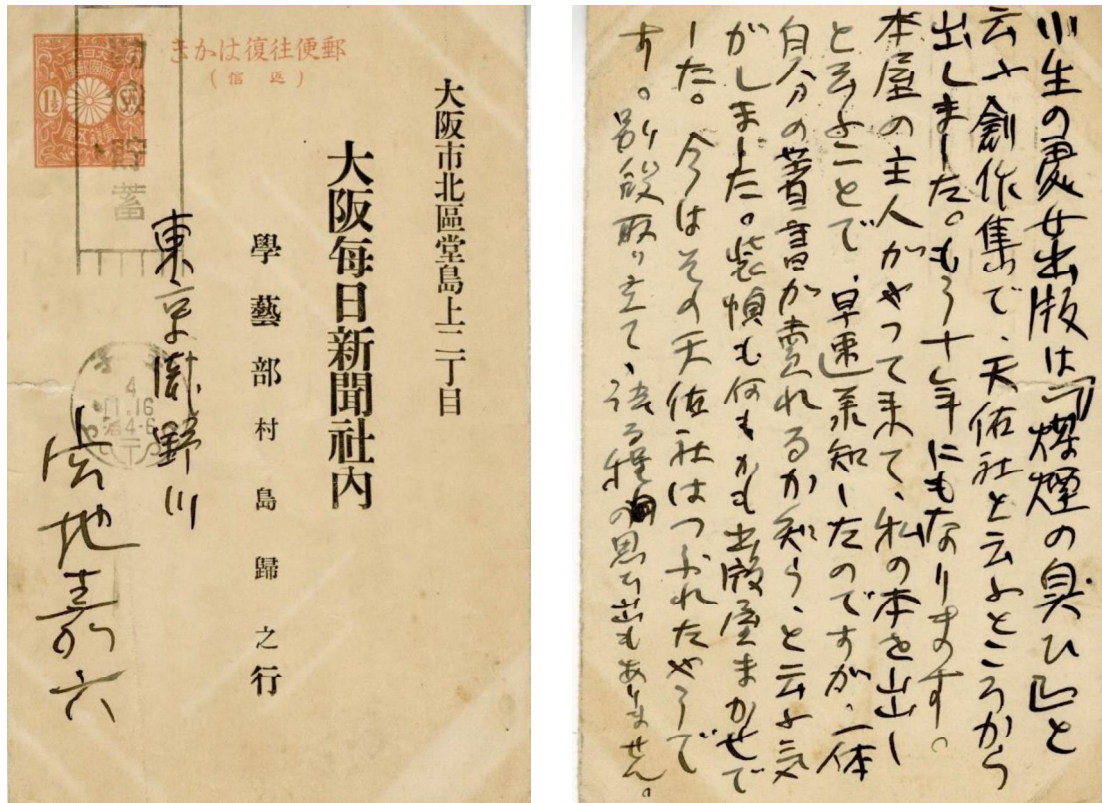 郵便往復はかき
(返信)
1½
貯蓄
大阪市北區堂島上二丁目
大阪毎日新聞社内
學藝部村島歸之行
東京瀧野川
宮地嘉六
4
11.16
4-6
小生の處女出版は『煤煙の臭ひ』と
云ふ創作集で、天佑社と云ふところから
出しました。もう十年にもなります。
本屋の主人がやつて来て、私の本を出し
と云ふことで、早速承知したのですが、一体
自分の著書が売れるか知ら、と云ふ気
がしました。装幀も何もかも出版屋まかせで
した。今はその天佑社はつぶれたやうで
す。別段取り立てゝ語る程の思ひ出もありません。